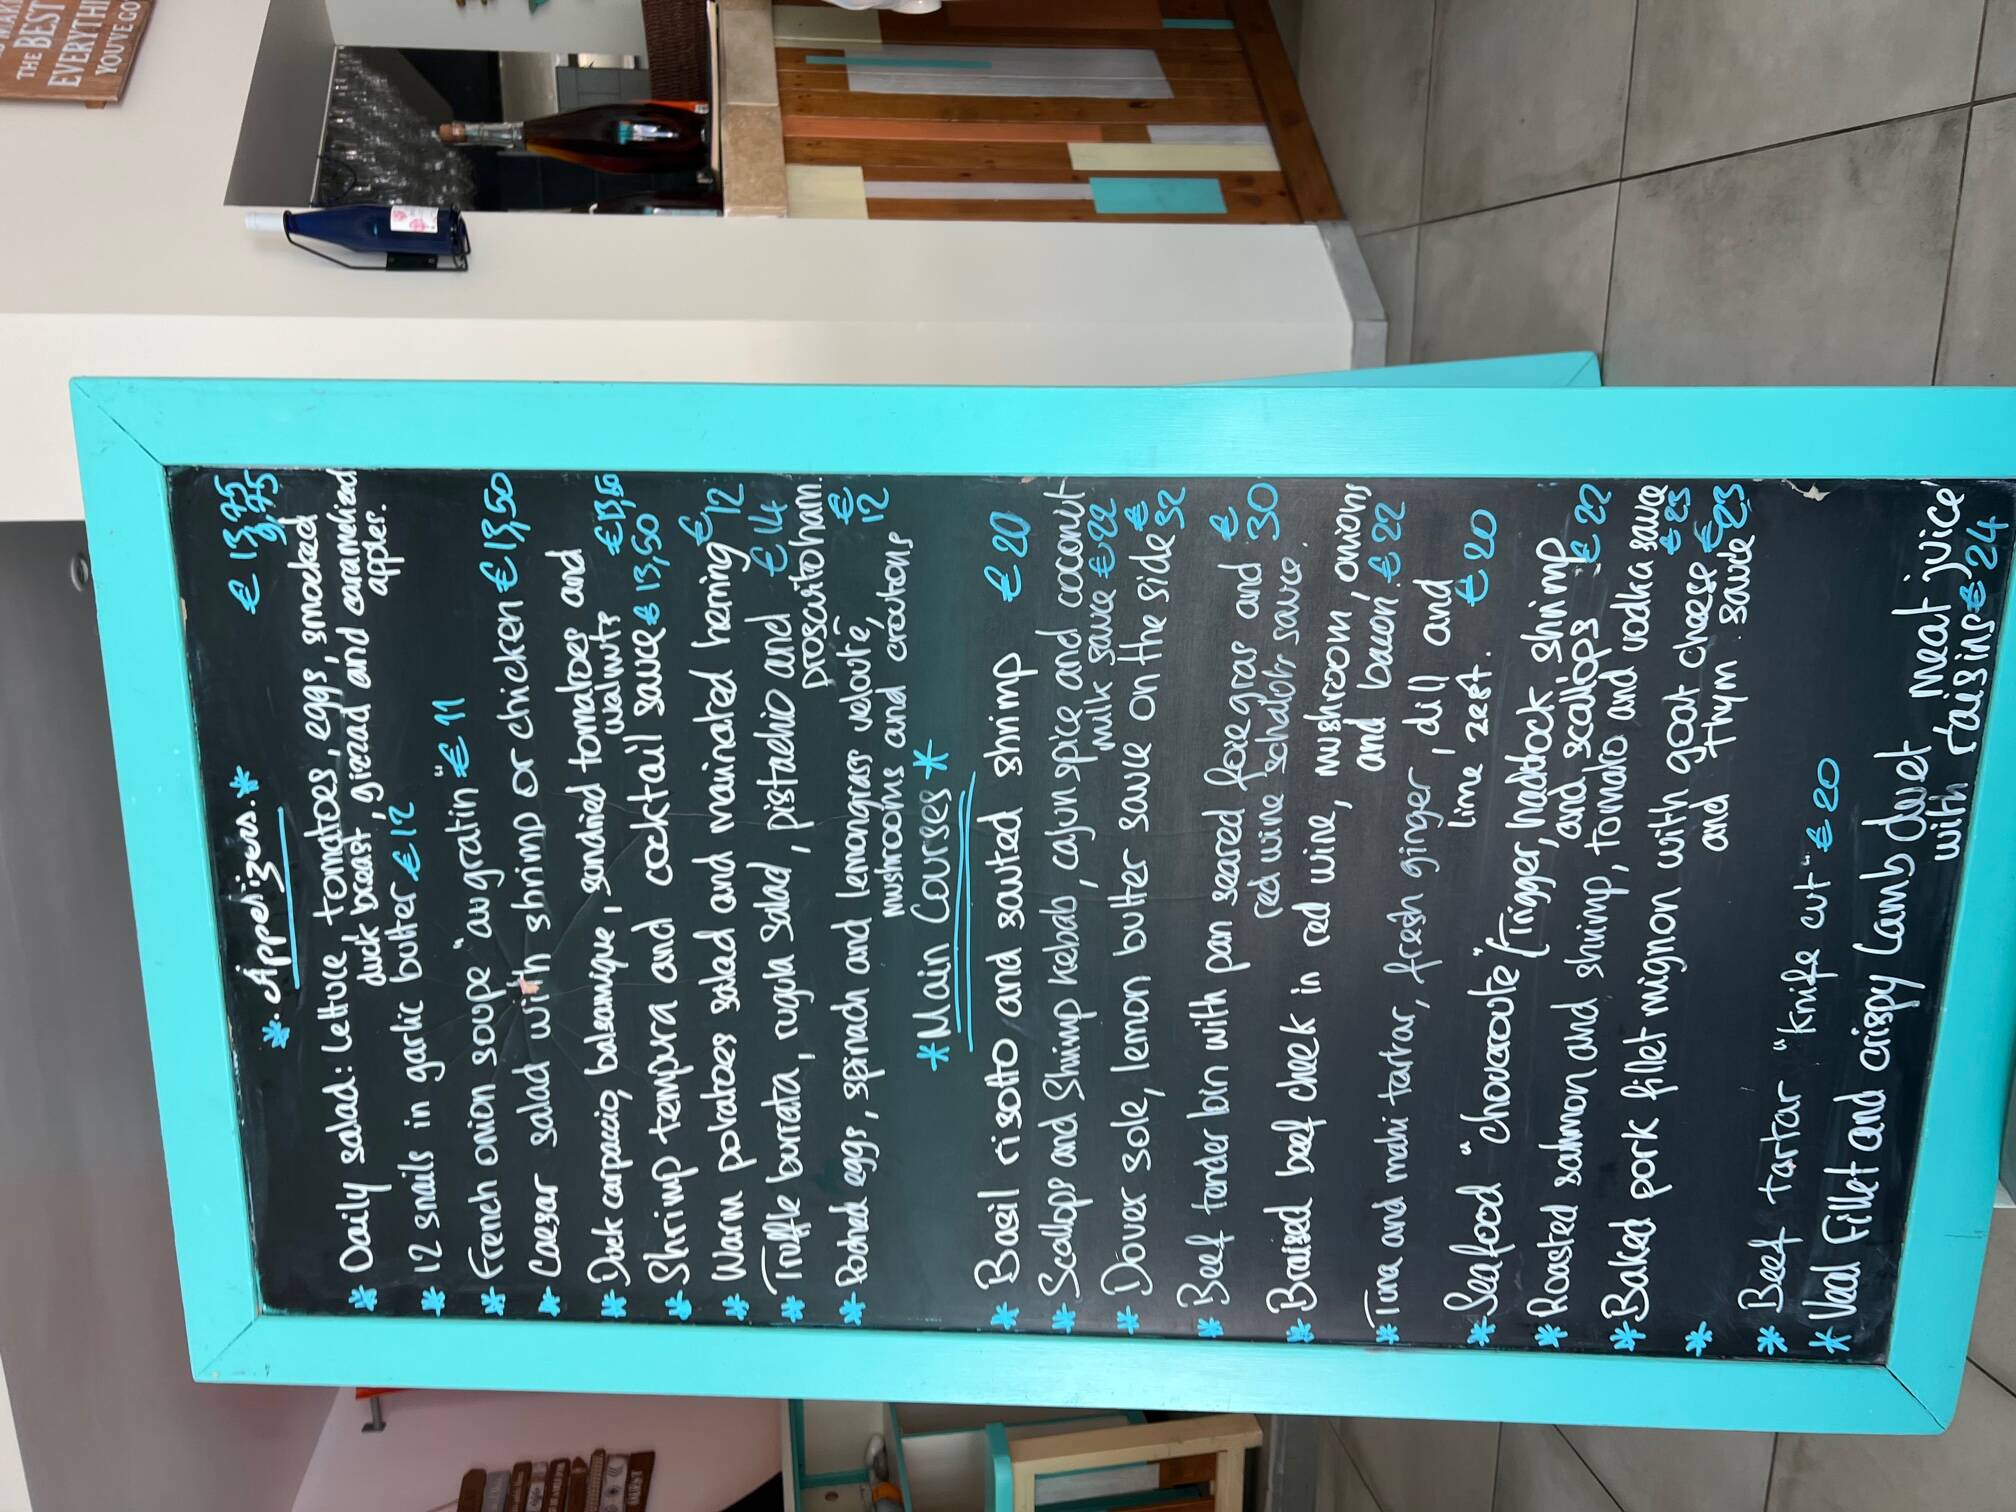 THE BEST
EVERYTH
YOU'VE GO
*. Appetizers. *
€ 13,75
9,75
* Daily salad: Lettuce tomatoes, eggs, smocked
duck breast, gizzad and caramelized
apples.
* 12 snails in garlic butter € 12
* French onion soupe "au gratin" € 11
* Caesar salad with shrimp or chicken € 13,50
* Duck carpaccio, balsamique, sundried tomatoes and
walnuts € 13,50
* Shrimp tempura and cocktail sauce € 13,50
* Warm potatoes salad and mainated herring € 12
* Truffle burrata, rugula salad, pistachio and € 14
proscuitoham.
* Poched eggs, spinach and lemongrass velouté, € 12
mushrooms and croutons
* Main Courses *
* Basil risotto and sauted shrimp € 20
* Scallops and Shrimp kebab, cajun spice and coconut
milk sauce € 22
* Dover sole, lemon butter sauce on the side € 32
* Beef tender loin with pan seared foie gras and € 30
red wine schalots sauce.
* Braised beef cheek in red wine, mushroom, onions
and bacon. € 22
* Tuna and mahi tartar, fresh ginger, dill and
lime zest. € 20
* Seafood "choucroute" (Trigger, haddock shrimp
and scallops € 22
* Roasted salmon and shrimp, tomato and vodka sauce
€ 23
* Baked pork fillet mignon with goat cheese €
and thym. sauce 23
*
* Beef tartar "knife cut" € 20
* Veal Fillet and crispy Lamb duet meat juice
with raisins € 24